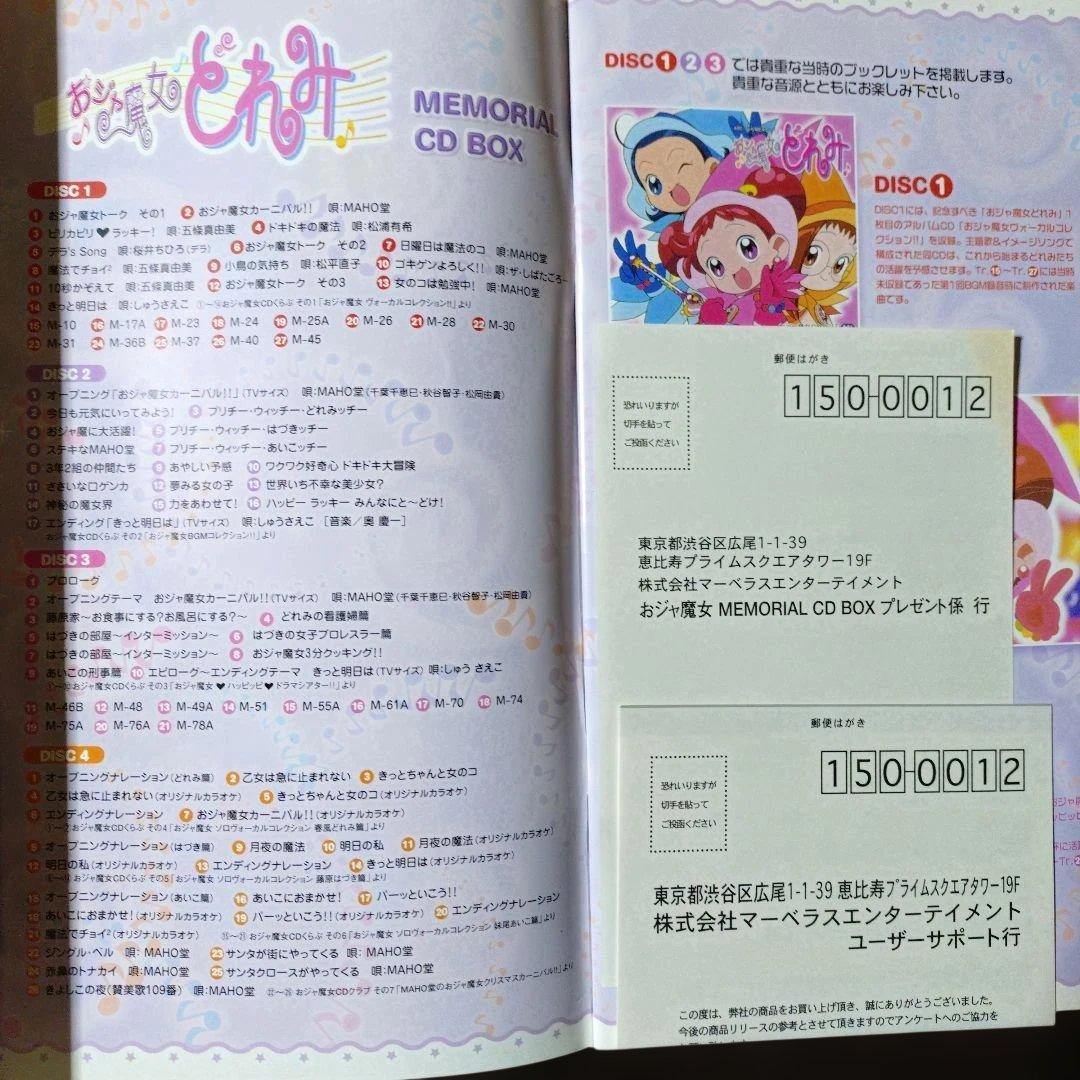 おジャ魔女どれみ
MEMORIAL
CD BOX
DISC 1
1 おジャ魔女トーク その1 2 おジャ魔女カーニバル!! 唄:MAHO堂
3 ピリカピリ♥ラッキー! 唄:五條真由美 4 ドキドキの魔法 唄:松浦有希
5 デラ's Song 唄:桜井ちひろ(デラ) 6 おジャ魔女トーク その2 7 日曜日は魔法のコ 唄:MAHO堂
8 魔法でチョイ² 唄:五條真由美 9 小鳥の気持ち 唄:松平直子 10 ゴキゲンよろしく!! 唄:ザ・しばたごろー
11 10秒かぞえて 唄:五條真由美 12 おジャ魔女トーク その3 13 女のコは勉強中! 唄:MAHO堂
14 きっと明日は 唄:しゅうさえこ ①〜⑭おジャ魔女CDくらぶ その1「おジャ魔女 ヴォーカルコレクション!!」より
15 M-10 16 M-17A 17 M-23 18 M-24 19 M-25A 20 M-26 21 M-28 22 M-30
23 M-31 24 M-36B 25 M-37 26 M-40 27 M-45
DISC 2
1 オープニング「おジャ魔女カーニバル!!」(TVサイズ) 唄:MAHO堂(千葉千恵巳・秋谷智子・松岡由貴)
2 今日も元気にいってみよう! 3 プリチー・ウィッチー・どれみッチー
4 おジャ魔に大活躍! 5 プリチー・ウィッチー・はづきッチー
6 ステキなMAHO堂 7 プリチー・ウィッチー・あいこッチー
8 3年2組の仲間たち 9 あやしい予感 10 ワクワク好奇心 ドキドキ大冒険
11 ささいな口ゲンカ 12 夢みる女の子 13 世界いち不幸な美少女?
14 神秘の魔女界 15 力をあわせて! 16 ハッピー ラッキー みんなにと〜どけ!
17 エンディング「きっと明日は」(TVサイズ) 唄:しゅうさえこ [音楽/奥 慶一]
おジャ魔女CDくらぶ その2「おジャ魔女BGMコレクション!!」より
DISC 3
1 プロローグ
2 オープニングテーマ おジャ魔女カーニバル!!(TVサイズ) 唄:MAHO堂(千葉千恵巳・秋谷智子・松岡由貴)
3 藤原家〜お食事にする?お風呂にする?〜 4 どれみの看護婦篇
5 はづきの部屋〜インターミッション〜 6 はづきの女子プロレスラー篇
7 はづきの部屋〜インターミッション〜 8 おジャ魔女3分クッキング!!
9 あいこの刑事篇 10 エピローグ〜エンディングテーマ きっと明日は(TVサイズ) 唄:しゅう さえこ
①〜⑩おジャ魔女CDくらぶ その3「おジャ魔女♥ハッピッピ♥ドラマシアター!!」より
11 M-46B 12 M-48 13 M-49A 14 M-51 15 M-55A 16 M-61A 17 M-70 18 M-74
19 M-75A 20 M-76A 21 M-78A
DISC 4
1 オープニングナレーション(どれみ篇) 2 乙女は急に止まれない 3 きっとちゃんと女のコ
4 乙女は急に止まれない(オリジナルカラオケ) 5 きっとちゃんと女のコ(オリジナルカラオケ)
6 エンディングナレーション 7 おジャ魔女カーニバル!!(オリジナルカラオケ)
①〜⑦おジャ魔女CDくらぶ その4「おジャ魔女 ソロヴォーカルコレクション 春風どれみ篇」より
8 オープニングナレーション(はづき篇) 9 月夜の魔法 10 明日の私 11 月夜の魔法(オリジナルカラオケ)
12 明日の私(オリジナルカラオケ) 13 エンディングナレーション 14 きっと明日は(オリジナルカラオケ)
⑧〜⑭おジャ魔女CDくらぶ その5「おジャ魔女 ソロヴォーカルコレクション 藤原はづき篇」より
15 オープニングナレーション(あいこ篇) 16 あいこにおまかせ! 17 パーッといこう!!
18 あいこにおまかせ!(オリジナルカラオケ) 19 パーッといこう!!(オリジナルカラオケ) 20 エンディングナレーション
21 魔法でチョイ²(オリジナルカラオケ) ⑮〜㉑おジャ魔女CDくらぶ その6「おジャ魔女 ソロヴォーカルコレクション 妹尾あいこ篇」より
22 ジングル・ベル 唄:MAHO堂 23 サンタが街にやってくる 唄:MAHO堂
24 赤鼻のトナカイ 唄:MAHO堂 25 サンタクロースがやってくる 唄:MAHO堂
26 きよしこの夜(賛美歌109番) 唄:MAHO堂 ㉒〜㉖おジャ魔女CDクラブ その7「MAHO堂のおジャ魔女クリスマスカーニバル!!」より
DISC 1 2 3 では貴重な当時のブックレットを掲載します。
貴重な音源とともにお楽しみ下さい。
おジャ魔女どれみ
DISC 1
DISC1には、記念すべき「おジャ魔女どれみ」1
枚目のアルバムCD「おジャ魔女ヴォーカルコレ
クション!!」を収録。主題歌&イメージソングで
構成された同CDは、これから始まるどれみたち
の活躍を予感させます。Tr.15〜Tr.27には当時
未収録であった第1回BGM録音時に制作された楽
曲です。
郵便はがき
恐れいりますが
切手を貼って
ご投函ください
150-0012
東京都渋谷区広尾1-1-39
恵比寿プライムスクエアタワー19F
株式会社マーベラスエンターテイメント
おジャ魔女 MEMORIAL CD BOX プレゼント係 行
郵便はがき
恐れいりますが
切手を貼って
ご投函ください
150-0012
東京都渋谷区広尾1-1-39 恵比寿プライムスクエアタワー19F
株式会社マーベラスエンターテイメント
ユーザーサポート行
この度は、弊社の商品をお買い上げ頂き、誠にありがとうございました。
今後の商品リリースの参考とさせて頂きますのでアンケートへのご協力を